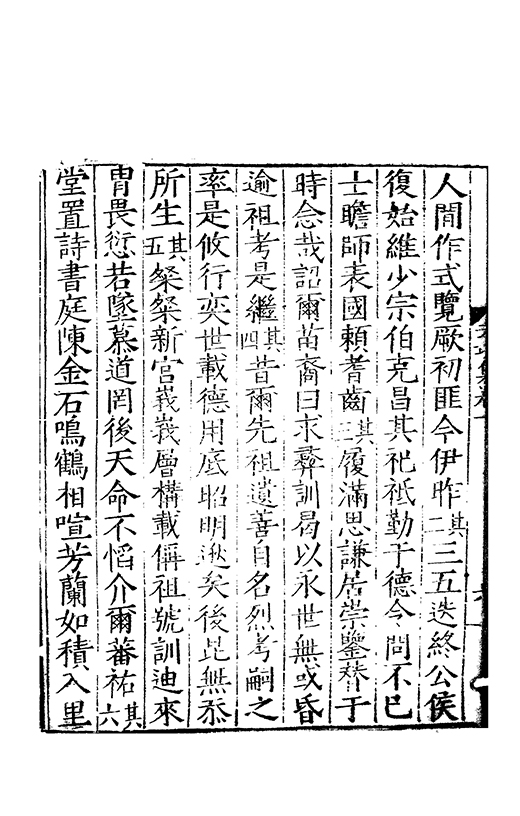 人間作式覽厥初匪今伊昨其二三五迭終公侯
復始維少宗伯克昌其祀祗勤于德令問不已
士瞻師表國頼耆齒其三履滿思謙居崇鑒替于
時念哉詔爾苗裔曰求彞訓曷以永世無或昏
逾祖考是繼其四昔爾先祖遺善自名烈考嗣之
率是攸行奕世載德用底昭明逖矣後昆無忝
所生其五粲粲新宮峩峩層構載偁祖號訓迪來
胄畏愆若墜慕道罔後天命不慆介爾蕃祐其六
堂置詩書庭陳金石鳴鶴相喧芳蘭如積入里